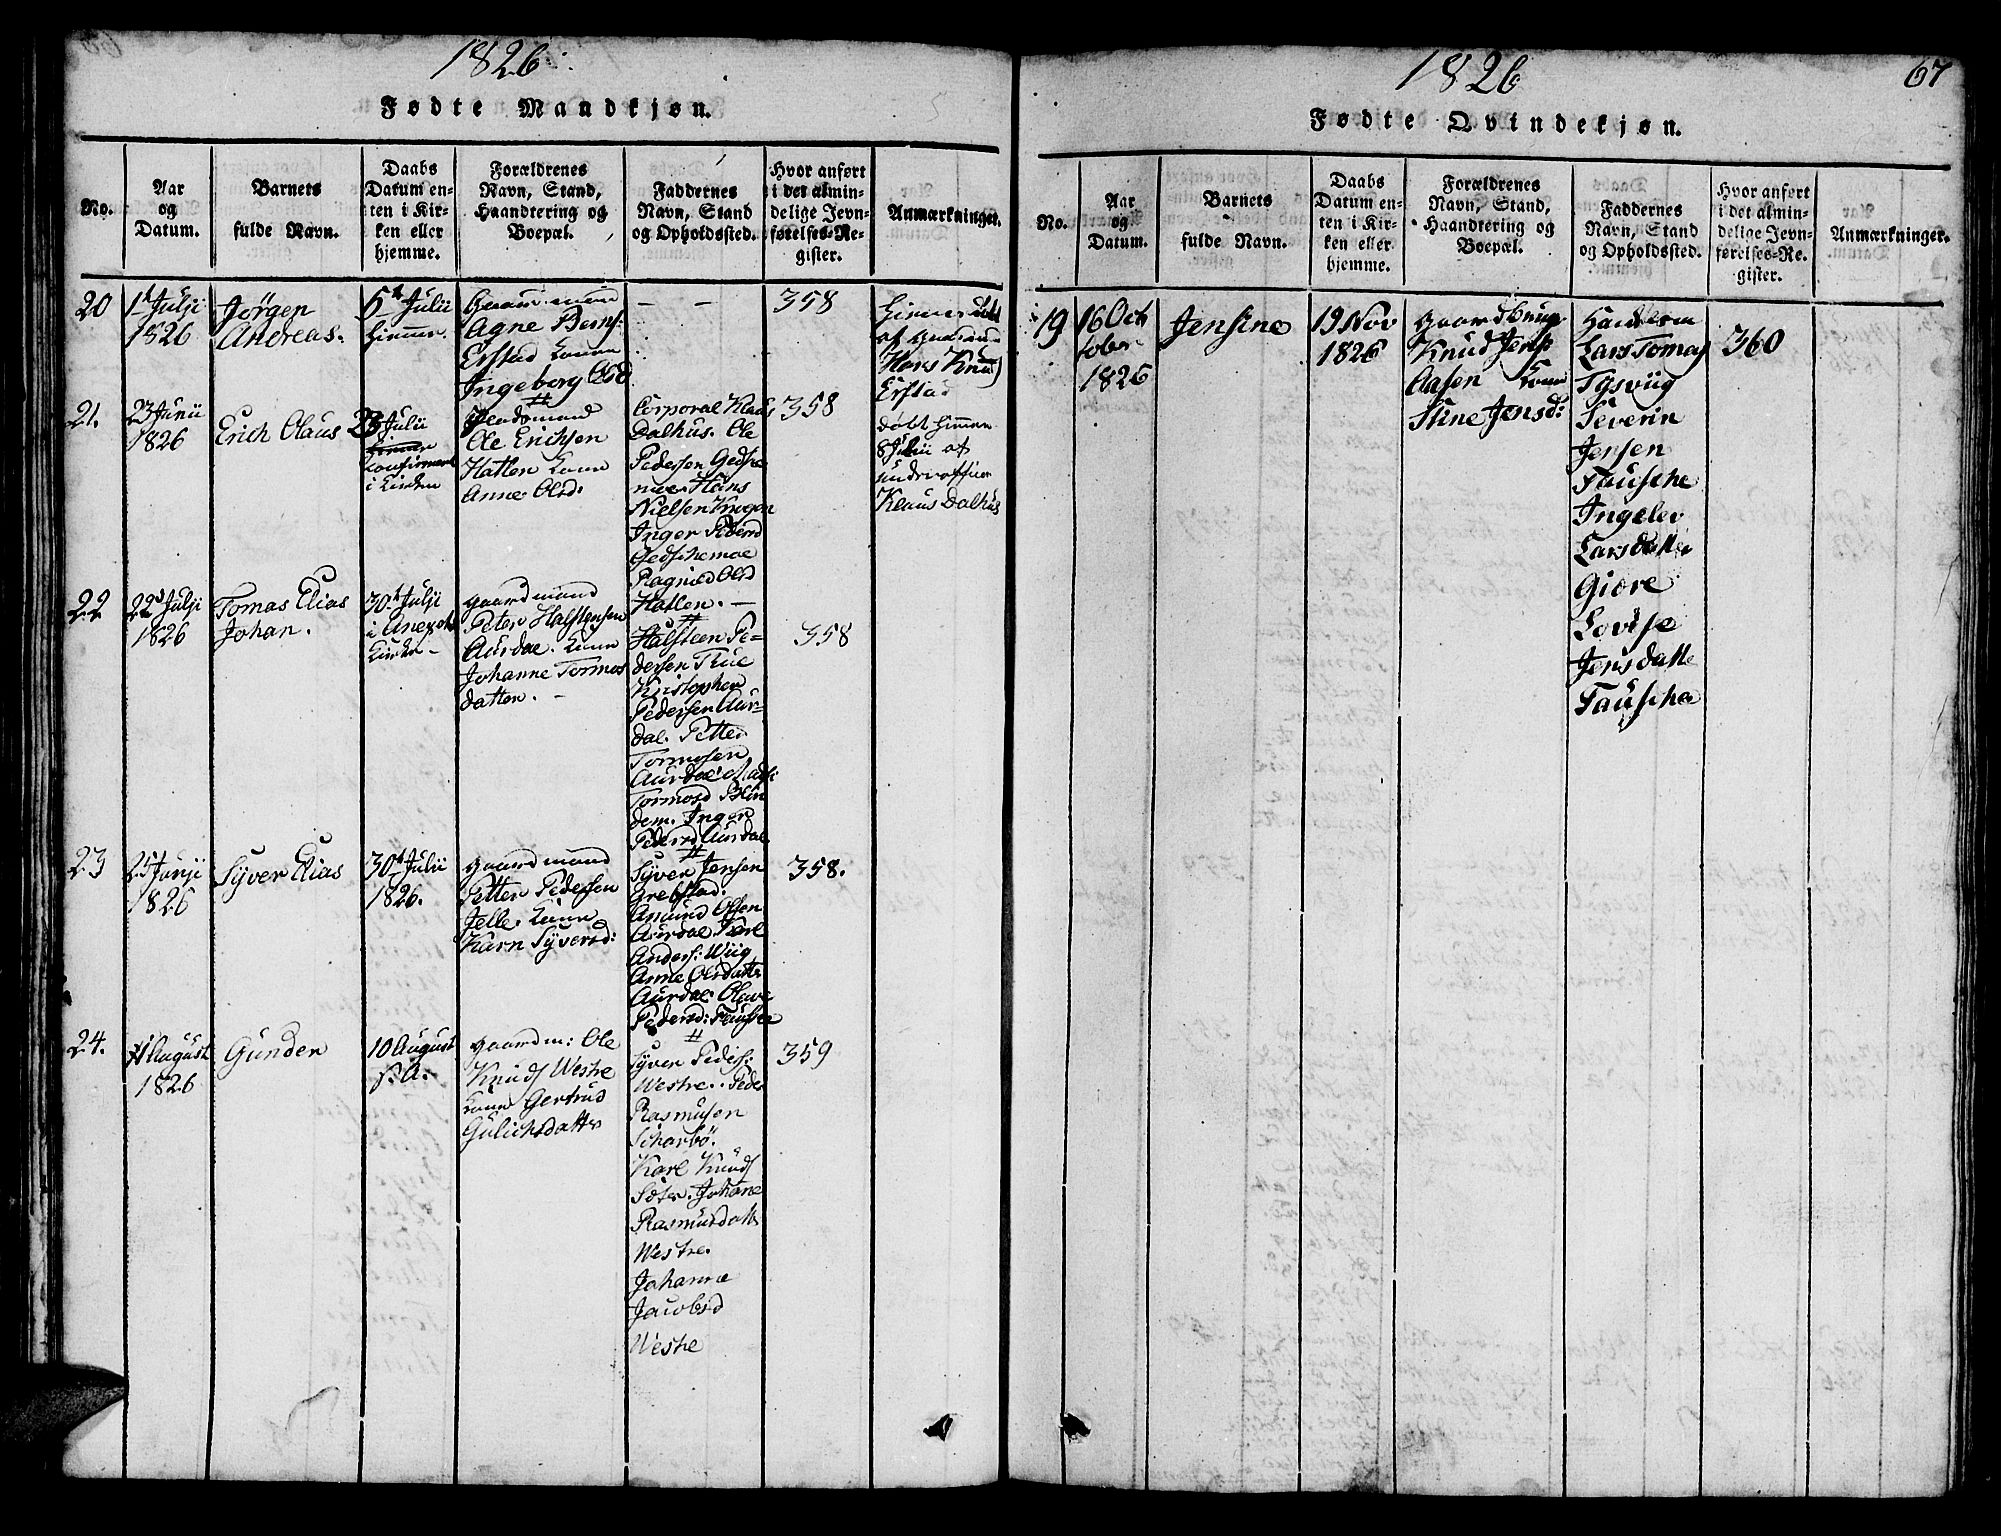 1826.
Fødte Mandkjøn.
No.
Aar
og
Datum.
Barnets
fulde Navn.
Daabs
Datum en-
ten i Kir-
ken eller
hjemme.
Forældrenes
Navn, Stand,
Haandtering og
Boepæl.
Faddernes
Navn, Stand
og Opholdssted.
Hvor anført
i det almin-
delige Jevn-
førelses-Re-
gister.
Anmærkninger.
20
1st Julji
1826
Jörgen
Andreas.
5t Julii
hjemme.
Agne Berns:
Erstad
Ingeborg Olsd
— —
358
af
Hans Knud
Erstad
21.
23 Junii
1826
Erich Olaus
Julii
i Kirken
Ole Erichsen
Hatlen
Anne Olsd:
Corporal Klaus
Dalhus. Ole
Pedersen Gedske
moe. Hans
Nielsen Krogen
Inger Pedersd
Gedschemoe
Ragnild Olsd
Hatlen. —
358
döbt hjemme
8 Julii af
underofficer
Klaus Dalhus
22
22d Julji
1826
Tomas Elias
Johan.
30t Julji
i Anexets
Kirke –
gaardmand
Peter Halstensen
Aurdal. Kone
Johanne Tormos
datter. –
Halsteen Pe-
dersen
Kristopher
Pedersen Aur-
dal. Petter
Tormosen
Aurdal.
Tormosd
dem. Inger
Pedersd Aurdal
358
23
1826
Syver Elias
30t Julii
1826.
gaardmand
Petter Pedersen
Jelle. Kone
Karn Syversd:
Syver Jensen
Grebstad.
Amund Olsen
Aurdal Karl
Anders: Wiig
Anne Olsdatter
Aurdal. Olave
Pedersd: Fausche
358.
24.
August
1826
Gunder
10 August
s. A.
gaardm: Ole
Knuds Westre
Kone Gertrud
Gulichsdatter
Syver Peders:
Westre. Peder
Rasmusen
Scharbö.
Karl Knuds
Sæter. Johane
Rasmusdatt
Westre.
Johanne
Jacobsd
Westre
359
1826
67
Fødte Qvindekjøn.
No.
Aar
og
Datum.
Barnets
fulde Navn.
Daabs
Datum en-
ten i Kir-
ken eller
hjemme.
Forældrenes
Navn, Stand,
Haandtering og
Boepæl.
Faddernes
Navn, Stand
og Opholdssted.
Hvor anført
i det almin-
delige Jevn-
førelses-Re-
gister.
Anmærkninger.
19
16 Oct
tober
1826
Jensine
19 Nov
1826
Knud Jens
Aasen Kone
Stine Jensd:
Lars Tomas
Tysviig
Severin
Jensen
Fausche
Ingelev
Larsdatter
Giöre
Lovise
Jensdatte
Fausche
360